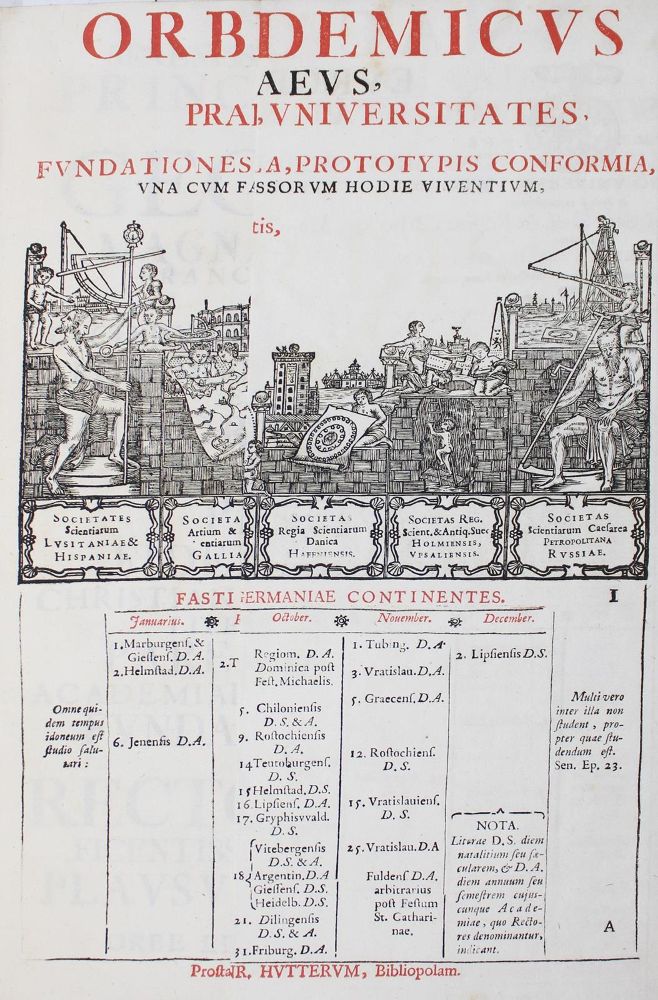 ORBDEMICVS
AEVS,
VNIVERSITATES,
FVNDATIONES A, PROTOTYPIS CONFORMIA,
VNA CVM FASSORVM HODIE VIVENTIVM,
tis,
SOCIETATES
Scientiarum
LVSITANIAE &
HISPANIAE.
SOCIETA
Artium &
entiarum
GALLIA
SOCIETAS
Regia Scientiarum
Danica
HAFFNIENSIS.
SOCIETAS REG.
Scient. & Antiq. Suec
HOLMIENSIS,
VPSALIENSIS.
SOCIETAS
Scientiarum Caesarea
PETROPOLITANA
RVSSIAE.
FASTI GERMANIAE CONTINENTES.
I
Omne qui-
dem tempus
idoneum est
studio salu-
tari:
Januarius.
1. Marburgens. &
Giessens. D. A.
2. Helmstad. D. A.
6. Jenensis D. A.
2. T
October.
Regiom. D. A.
Dominica post
Fest. Michaelis.
5. Chiloniensis
D. S. & A.
9. Rostochiensis
D. A.
14 Teutoburgens.
D. S.
15 Helmstad. D. S.
16. Lipsiens. D. A.
17. Gryphisvvald.
D. S.
Vitebergensis
D. S. & A.
18 Argentin. D. A
Giessens. D. S.
Heidelb. D. S.
21. Dilingensis
D. S. & A.
31. Friburg. D. A.
November.
1. Tubing. D. A.
3. Vratislau. D. A.
5. Graecens. D. A.
12. Rostochiens.
D. S.
15. Vratislauiens.
D. S.
25. Vratislau. D. A
Fuldens D. A.
arbitrarius
post Festum
St. Cathari-
nae.
December.
2. Lipsiensis D. S.
NOTA.
Literae D. S. diem
natalitium seu sae-
cularem, & D. A.
diem annuum seu
semestrem cujus-
cunque Acade-
miae, quo Recto-
res denominantur,
indicant.
Multi vero
inter illa non
student, pro-
pter quae stu-
dendum est.
Sen. Ep. 23.
A
HVTTERVM, Bibliopolam.